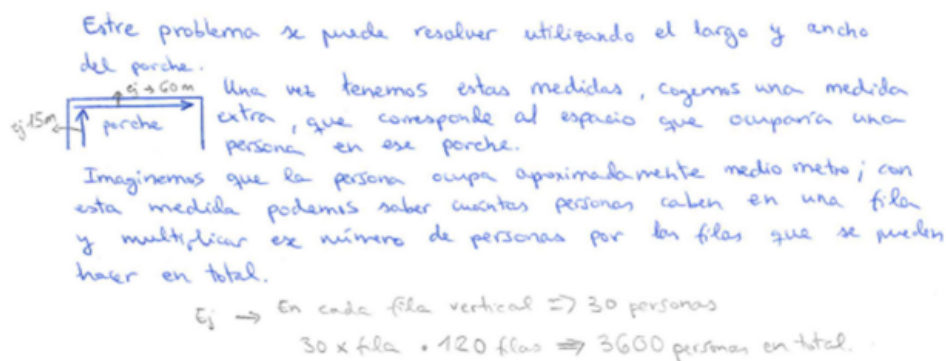 Estre problema se puede resolver utilizando el largo y ancho
del porche.
ej → 60m
Ej 15m
porche
Una vez tenemos estas medidas, cogemos una medida
extra, que corresponde al espacio que ocuparía una
persona en ese porche.
Imaginemos que la persona ocupa aproximadamente medio metro; con
esta medida podemos saber cuántas personas caben en una fila
y multiplicar ese número de personas por las filas que se pueden
hacer en total.
Ej → En cada fila vertical => 30 personas
30 x fila · 120 filas => 3600 personas en total.